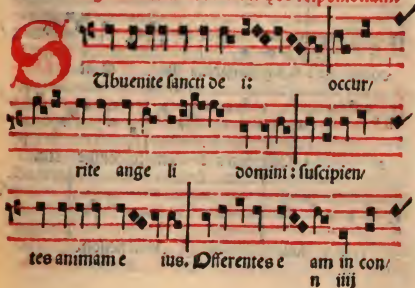 SUbuenite sancti de i: occur/
rite ange li domini: suscipien/
tes animam e ius. Offerentes e am in con/
n iiij